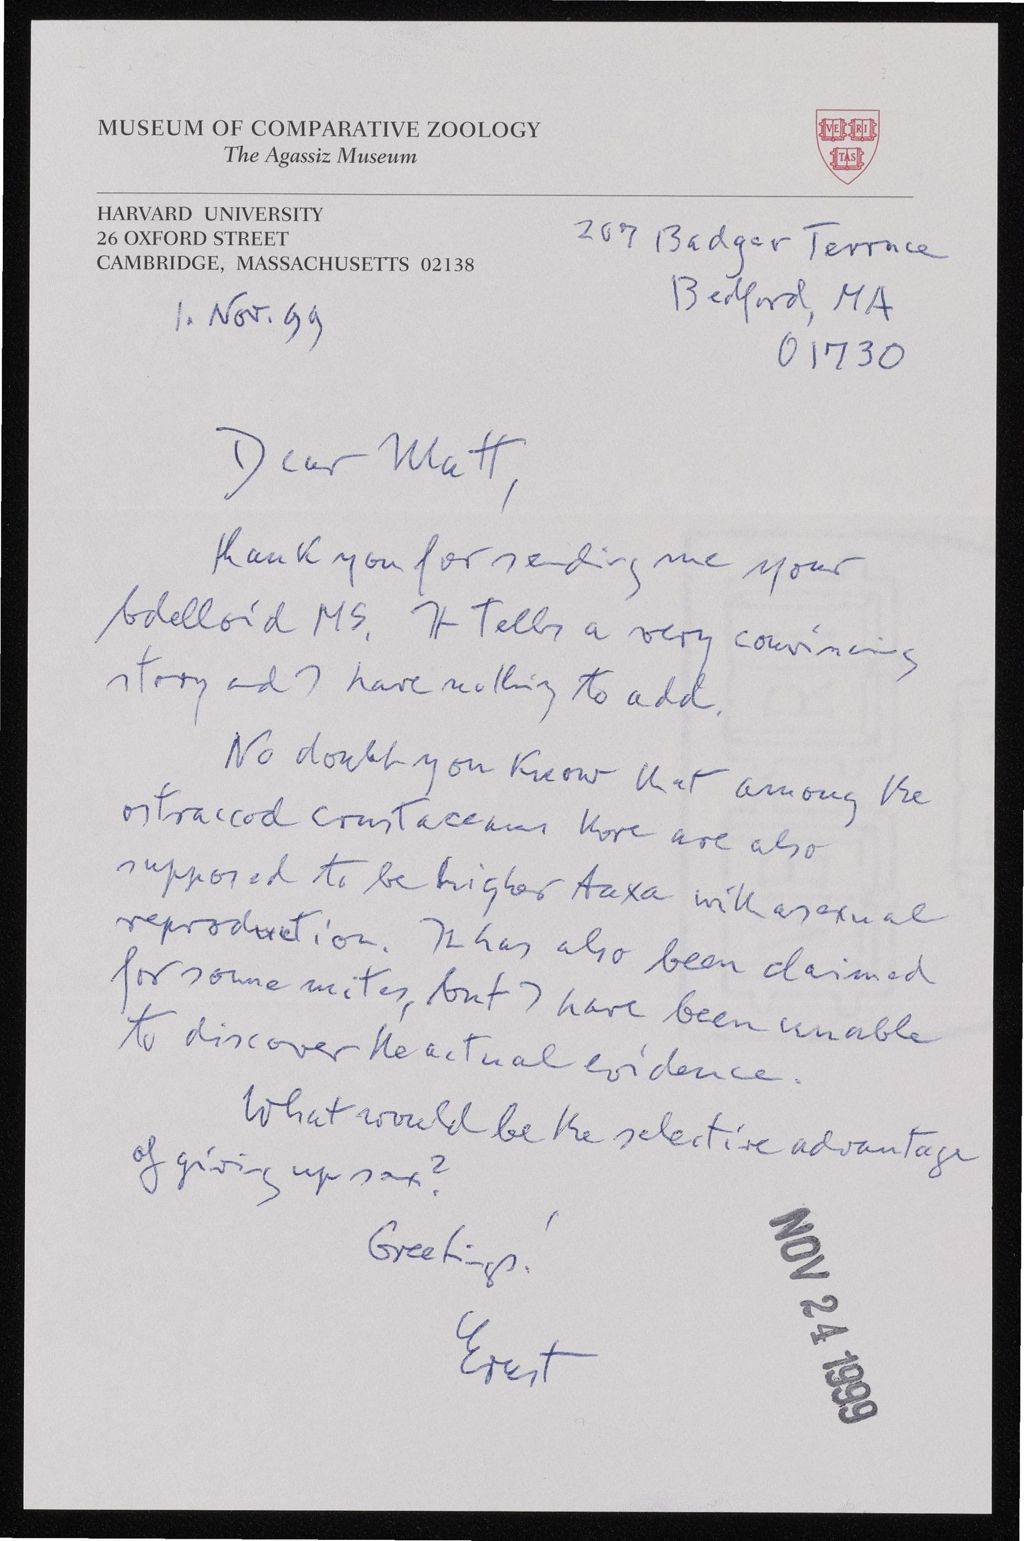 MUSEUM OF COMPARATIVE ZOOLOGY
The Agassiz Museum
VE RI TAS
HARVARD UNIVERSITY
26 OXFORD STREET
CAMBRIDGE, MASSACHUSETTS 02138
207 Badger Terrace
Bedford, MA
01730
1. Nov. 99
Dear Matt,
thank you for sending me your
bdelloid MS. It tells a very convincing
story and I have nothing to add.
No doubt you know that among the
ostraccod crustaceans there are also
supposed to be higher taxa with asexual
reproduction. It has also been claimed
for some mites, but I have been unable
to discover the actual evidence.
What would be the selective advantage
of giving up sex?
Greetings!
Ernst
NOV 24 1999